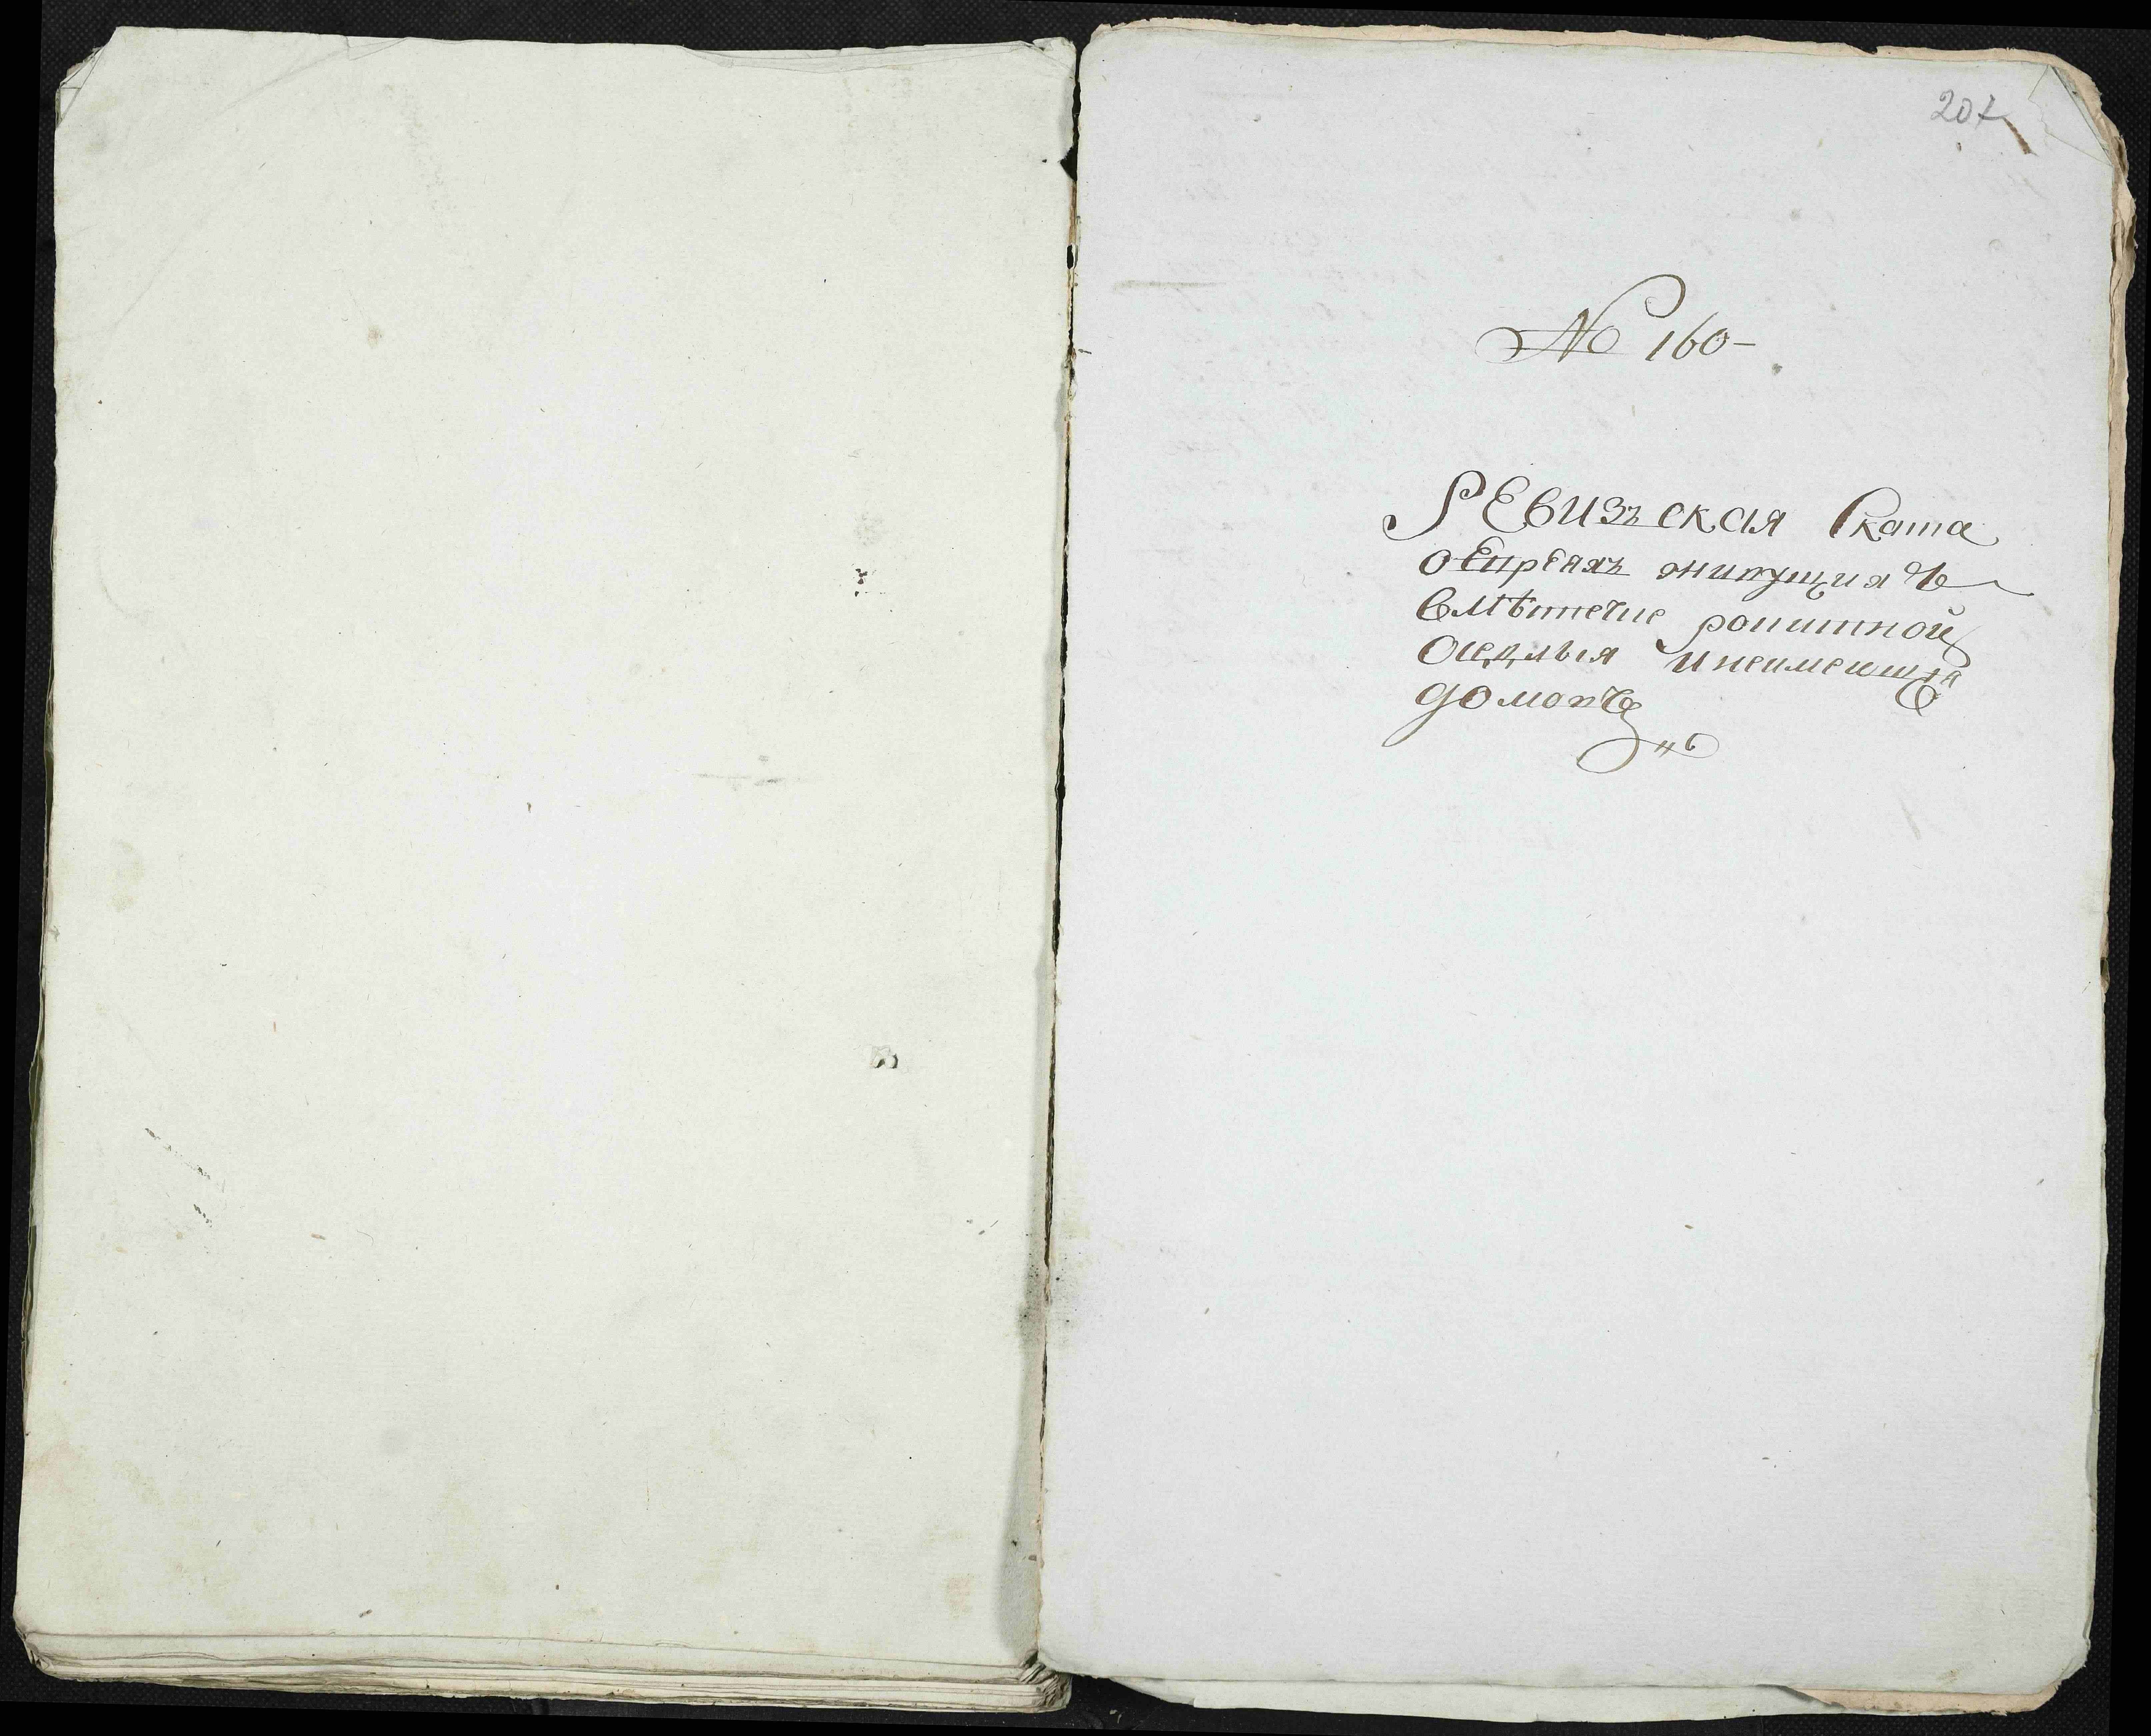 207
№ 160-
Ревизъская Скаска
оЕвреяхъ живущихъ
вмѣстечке рапитной
Оседлыя и неимеющия
домовъ